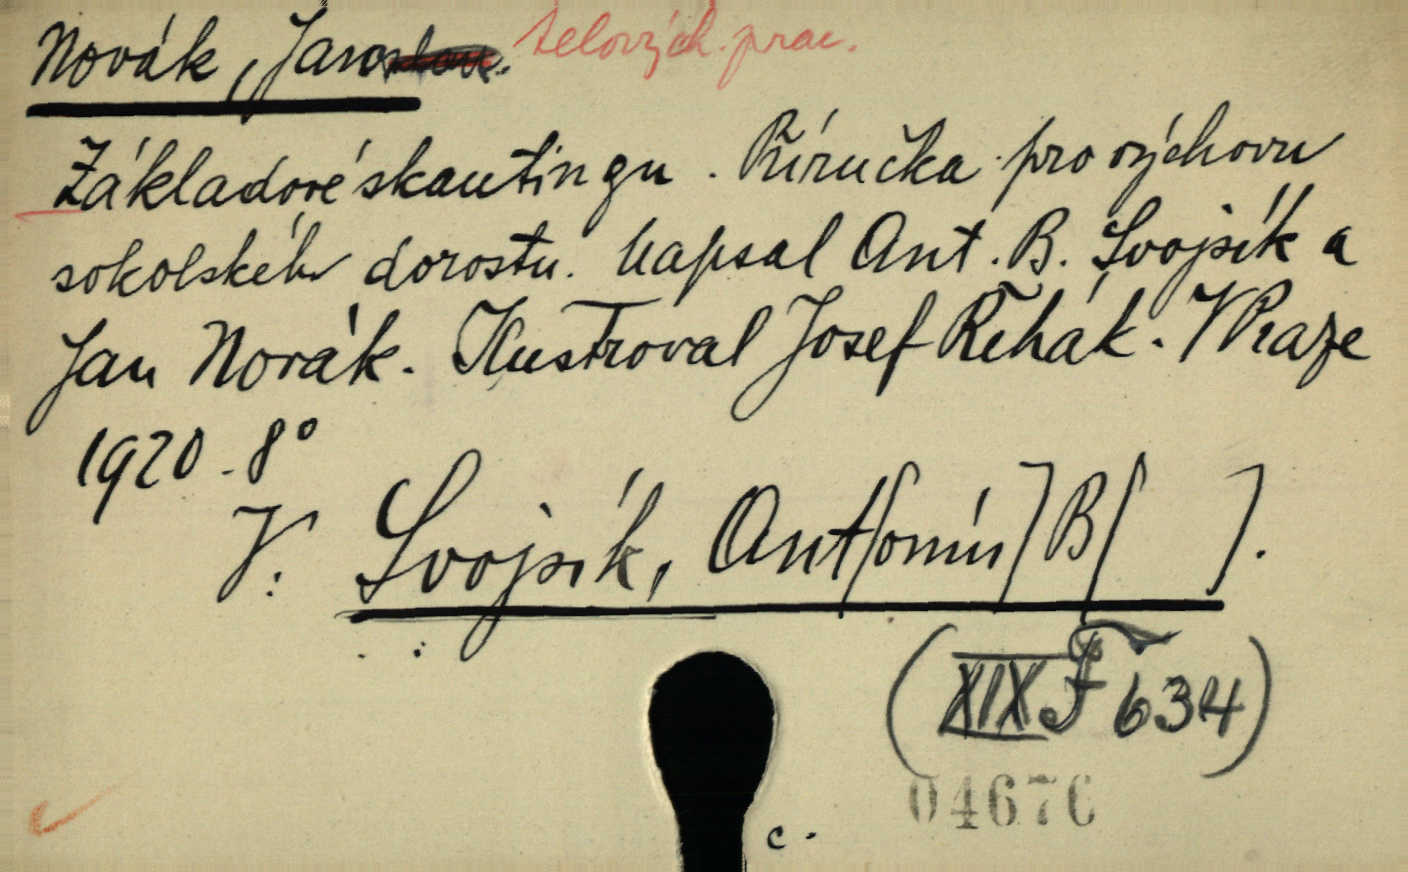 Novák, Jaroslav. tělových. prac.
Základové skautingu. Příručka pro výchovu
sokolského dorostu. Napsal Ant. B. Svojsík a
Jan Novák. Ilustroval Josef Řehák. V Praze
1920 - 8°
V: Svojsík, Ant[onín] B[ ].
(XIX F 634)
04676
c.